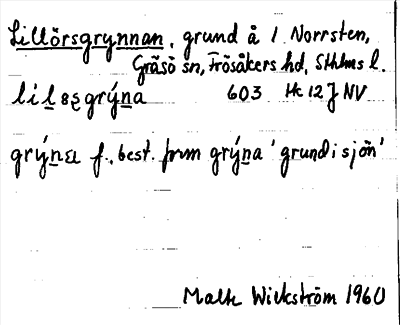 Lillörsgrynnan, grund å l. Norrsten,
Gräsö sn, Frösåkers hd, Sthlms l.
lilesgrýna 603 Hk 12J NV
grýna f., best. form grýna 'grund i sjön'
Math Wickström 1960